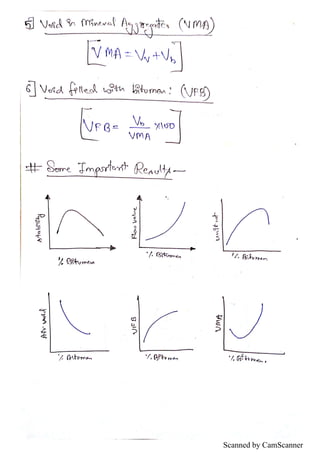 5] Void in Mineral Aggregates (VMA)
VMA = Vv + Vb
6] Void filled with bitumen: (VFB)
VFB = Vb/VMA × 100
# Some Important Results—
Stability
% Bitumen
Flow value
% Bitumen
Unit wt
% Bitumen
Air void
% Bitumen
VFB
% Bitumen
VMA
% Bitumen.
Scanned by CamScanner